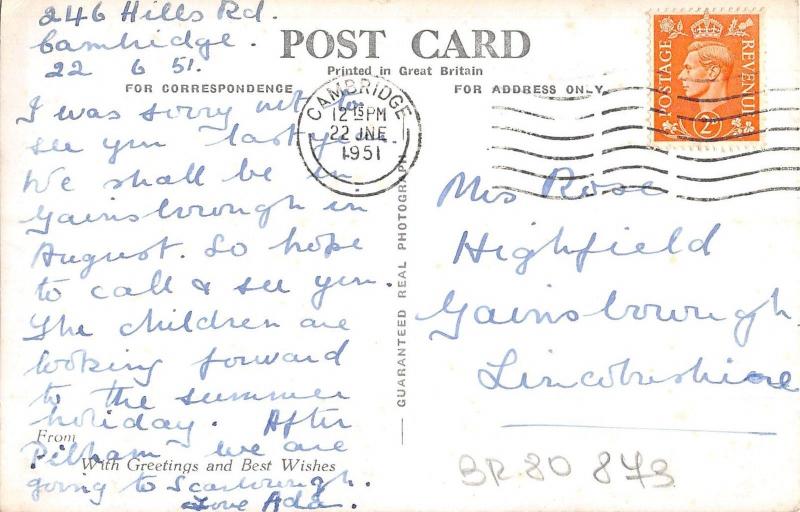 246 Hills Rd.
Cambridge.
22 6 51.
POST CARD
Printed in Great Britain
FOR CORRESPONDENCE
FOR ADDRESS ONLY
I was sorry not to
see you last year.
We shall be in
Gainsborough in
August. So hope
to call & see you.
The children are
looking forward
to the summer
holiday. After
From
Pilham we are
With Greetings and Best Wishes
going to Scarborough.
Love Ada.
GUARANTEED REAL PHOTOGRAPH
CAMBRIDGE
12 15 PM
22 JNE
1951
POSTAGE
REVENUE
2D
Mrs Rose
Highfield
Gainsborough
Lincolnshire
BR 80 873